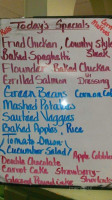 Today's Specials
Fried Chicken, Country Style
Steak
Baked Spaghetti
Flounder Baked Chicken
Grilled Salmon Dressing
Green Beans Corn on Cob
Mashed Potatoes
Sauteed Veggies
Baked Apples, Rice
Tomato
Cucumber Salad
Double Chocolate Apple Cobbler
Carrot Cake Strawberry
Pound Cake Shortcake